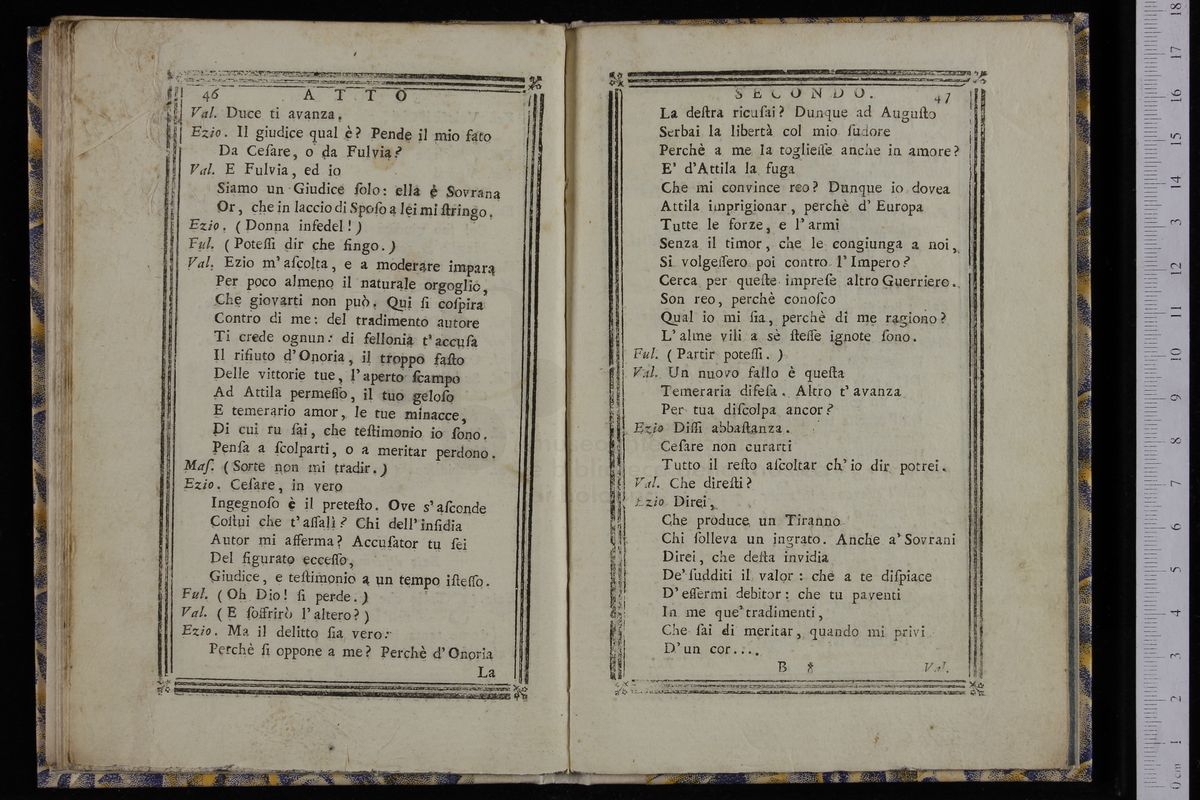 46 ATTO
Val. Duce ti avanza.
Ezio. Il giudice qual è? Pende il mio fato
Da Ceſare, o da Fulvia?
Val. E Fulvia, ed io
Siamo un Giudice ſolo: ella è Sovrana
Or, che in laccio di Spoſo a lei mi ſtringo.
Ezio. (Donna infedel!)
Ful. (Poteſſi dir che fingo.)
Val. Ezio m'aſcolta, e a moderare impara
Per poco almeno il naturale orgoglio,
Che giovarti non può. Qui ſi coſpira
Contro di me: del tradimento autore
Ti crede ognun: di fellonia t'accuſa
Il rifiuto d'Onoria, il troppo faſto
Delle vittorie tue, l'aperto ſcampo
Ad Attila permeſſo, il tuo geloſo
E temerario amor, le tue minacce,
Di cui ru ſai, che teſtimonio io ſono.
Penſa a ſcolparti, o a meritar perdono.
Maſ. (Sorte non mi tradir.)
Ezio. Ceſare, in vero
Ingegnoſo è il preteſto. Ove s'aſconde
Coſtui che t'aſſalì? Chi dell'inſidia
Autor mi afferma? Accuſator tu ſei
Del figurato ecceſſo,
Giudice, e teſtimonio a un tempo iſteſſo.
Ful. (Oh Dio! ſi perde.)
Val. (E ſoffrirò l'altero?)
Ezio. Ma il delitto ſia vero:
Perchè ſi oppone a me? Perchè d'Onoria
La
SECONDO. 47
La deſtra ricuſai? Dunque ad Auguſto
Serbai la libertà col mio ſudore
Perchè a me la toglieſſe anche in amore?
E' d'Attila la fuga
Che mi convince reo? Dunque io dovea
Attila imprigionar, perchè d'Europa
Tutte le forze, e l'armi
Senza il timor, che le congiunga a noi,
Si volgeſſero poi contro l'Impero?
Cerca per queſte impreſe altro Guerriero.
Son reo, perchè conoſco
Qual io mi ſia, perchè di me ragiono?
L'alme vili a sè ſteſſe ignote ſono.
Ful. (Partir poteſſi.)
Val. Un nuovo fallo è queſta
Temeraria difeſa. Altro t'avanza
Per tua diſcolpa ancor?
Ezio Diſſi abbaſtanza.
Ceſare non curarti
Tutto il reſto aſcoltar ch'io dir potrei.
Val. Che direſti?
Ezio Direi,
Che produce un Tiranno
Chi ſolleva un ingrato. Anche a'Sovrani
Direi, che deſta invidia
De'ſudditi il valor: che a te diſpiace
D'eſſermi debitor: che tu paventi
In me que'tradimenti,
Che ſai di meritar, quando mi privi
D'un cor....
B * Val.